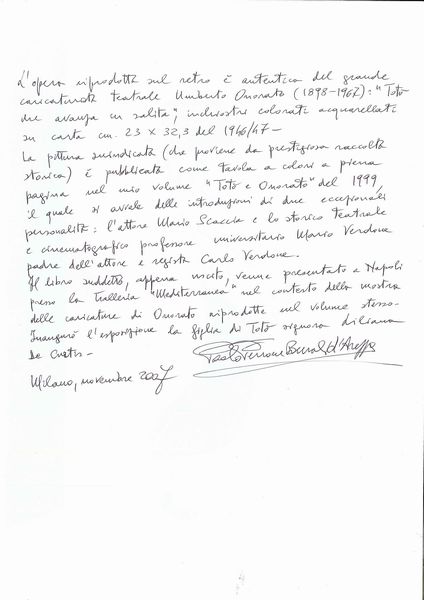 L'opera riprodotta sul retro è autentica del grande
caricaturista teatrale Umberto Onorato (1898-1967): "Totò
che avanza in salita", inchiostri colorati acquarellati
su carta cm. 23 x 32,3 del 1946/47-
La pittura suindicata (che proviene da prestigiosa raccolta
storica) è pubblicata come tavola a colori a piena
pagina nel mio volume "Totò e Onorato" del 1999,
il quale si avvale delle introduzioni di due eccezionali
personalità: l'attore Mario Scaccia e lo storico teatrale
e cinematografico professore universitario Mario Verdone
padre dell'attore e regista Carlo Verdone.
Il libro suddetto, appena uscito, venne presentato a Napoli
presso la Galleria "Mediterranea" nel contesto della mostra
delle caricature di Onorato riprodotte nel volume stesso.
Inaugurò l'esposizione la figlia di Totò signora Liliana
De Curtis-
Milano, novembre 2007